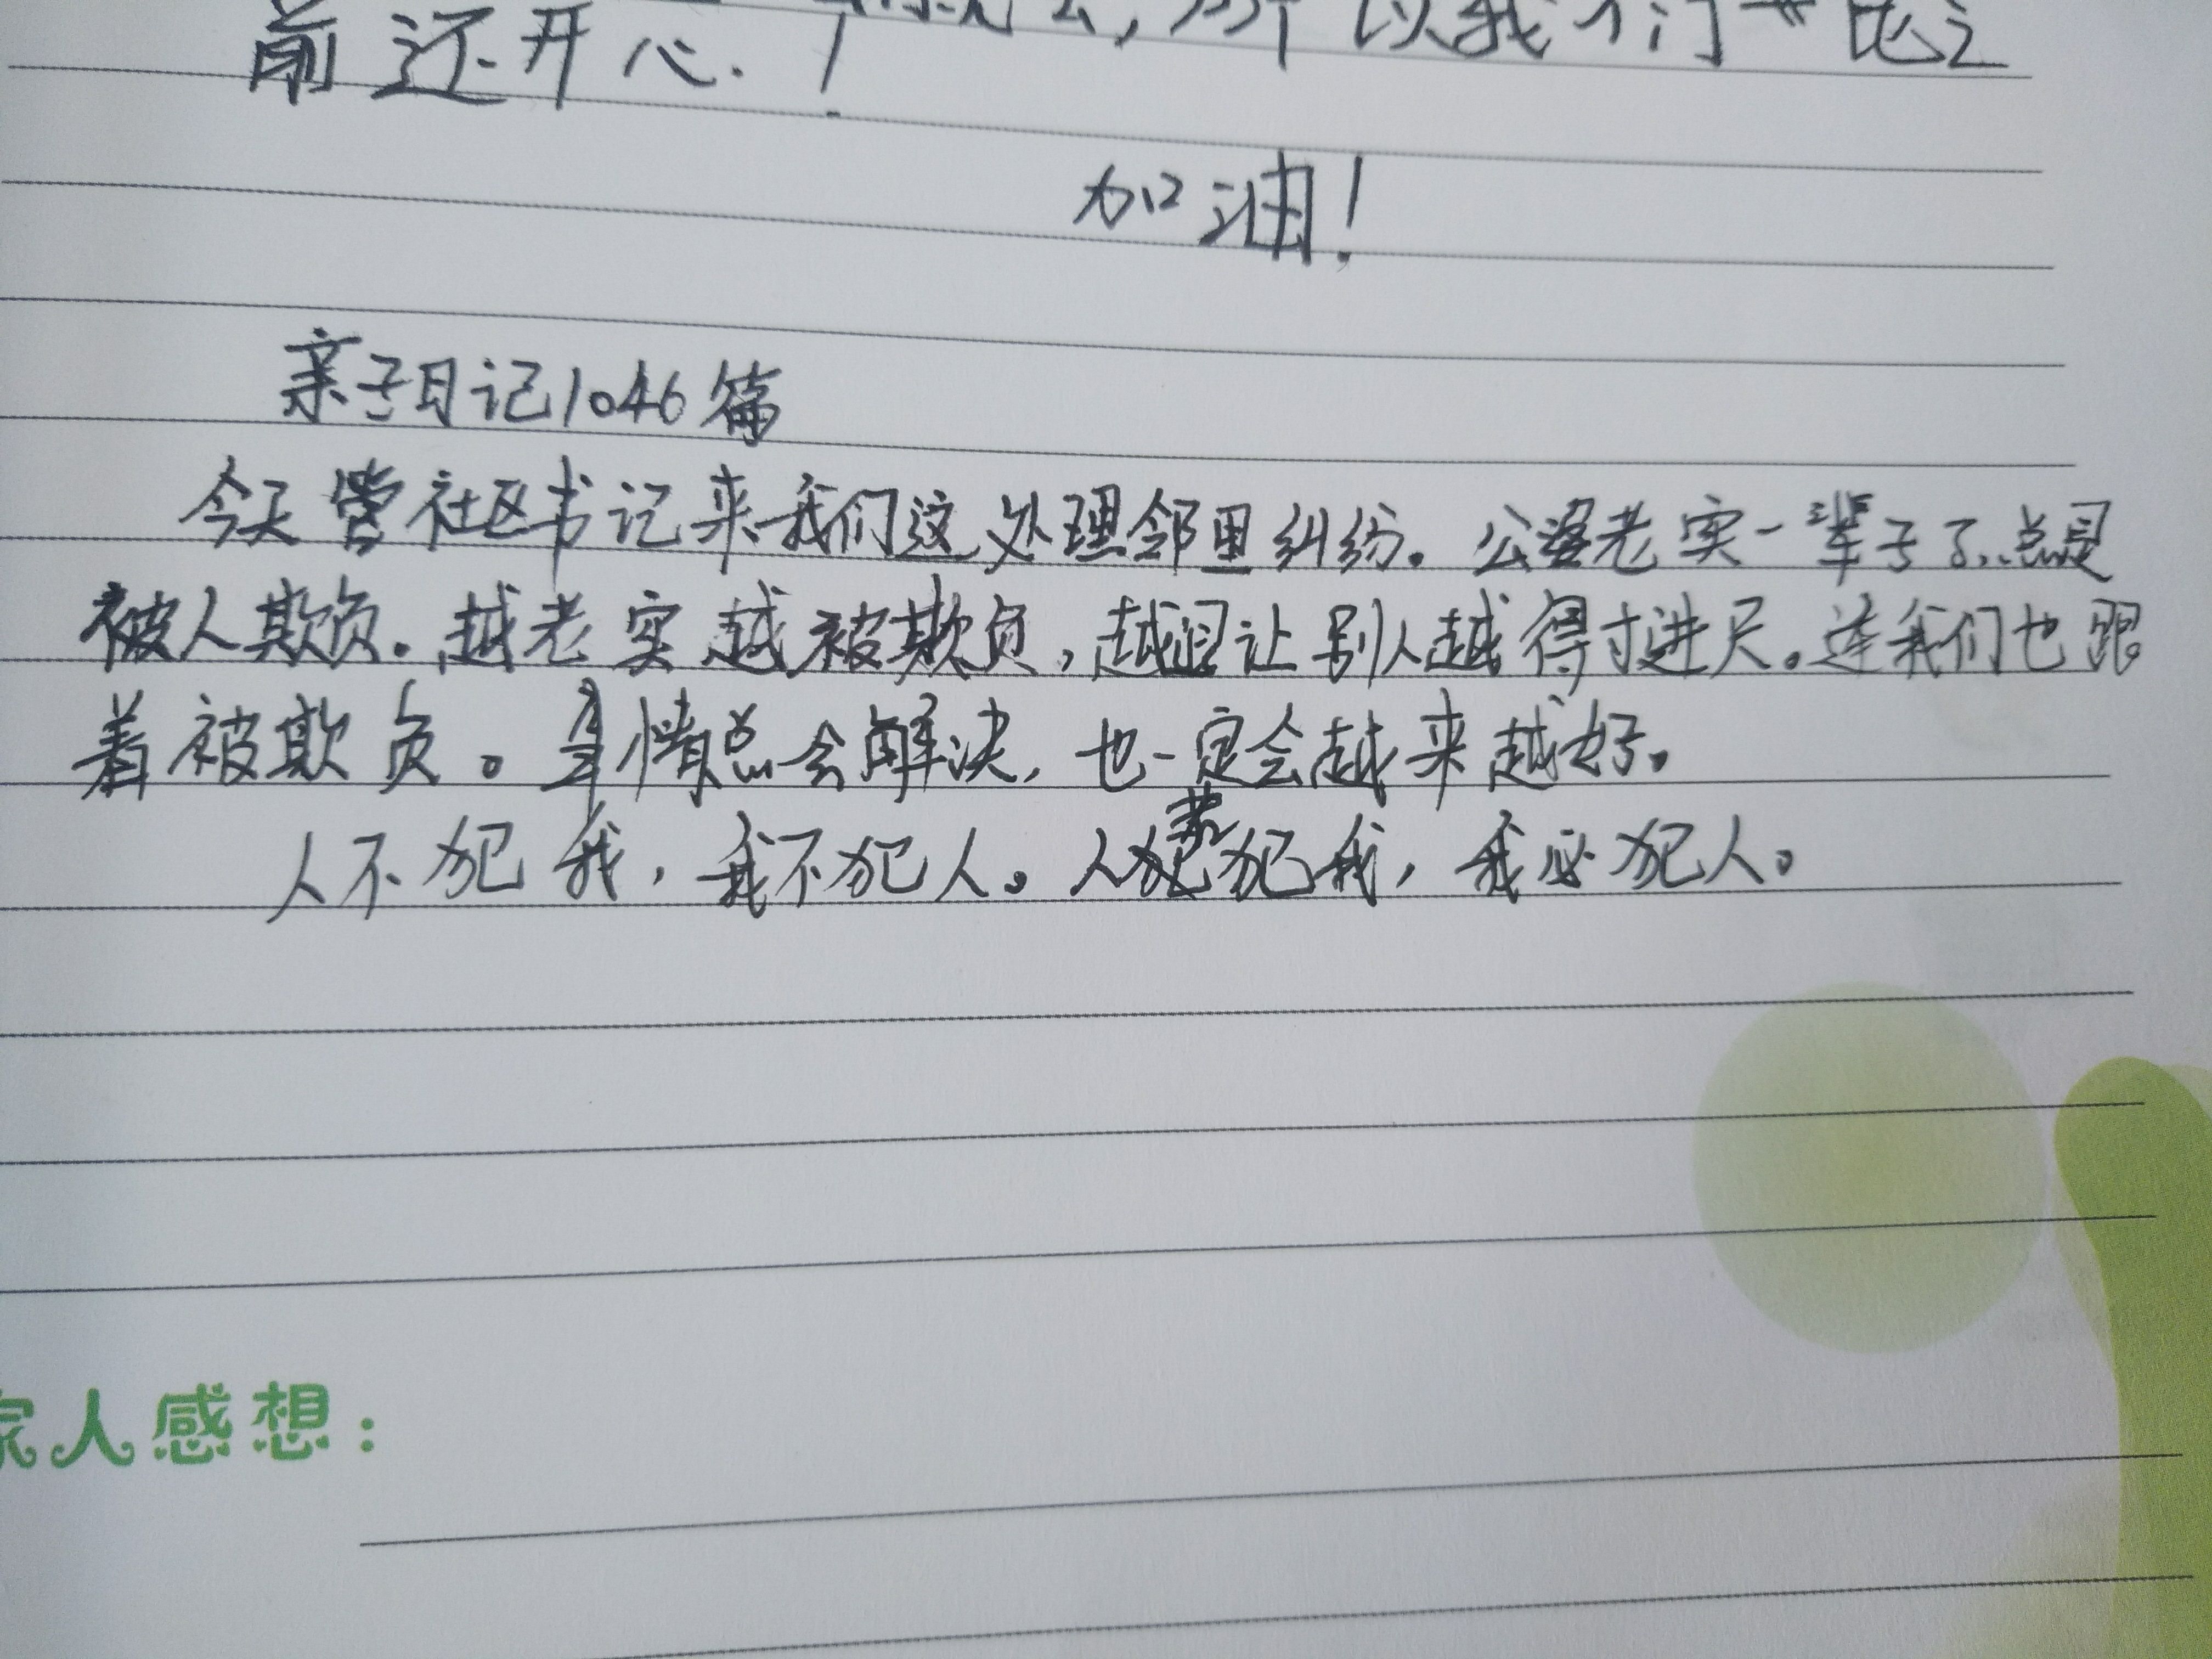 所以我们比之
前还开心.!
加油!
亲子日记1046篇
今天曾社区书记来我们这处理邻里纠纷。公婆老实一辈子了,总是
被人欺负。越老实越被欺负,越忍让别人越得寸进尺。连我们也跟
着被欺负。事情总会解决,也一定会越来越好。
人不犯我,我不犯人。人若犯我,我必犯人。
家人感想: